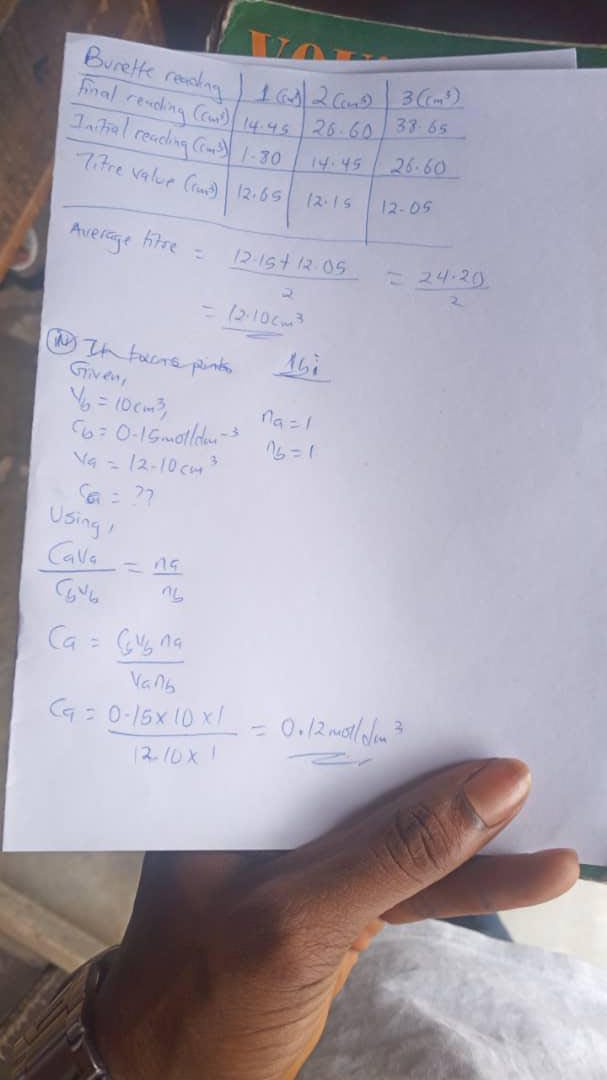 VOU
Burette reading | 1 (cm³) | 2 (cm³) | 3 (cm³)
Final reading (cm³) | 14.45 | 26.60 | 38.65
Initial reading (cm³) | 1.80 | 14.45 | 26.60
Titre value (cm³) | 12.65 | 12.15 | 12.05
Average titre = 12.15 + 12.05 / 2 = 24.20 / 2
= 12.10cm³
1bi
Given,
Vb = 10cm³,
na = 1
Cb = 0.15mol/dm-³
nb = 1
Va = 12.10cm³
Ca = ??
Using,
CaVa / CbVb = na / nb
Ca = CbVb na / Va nb
Ca = 0.15 x 10 x 1 / 12.10 x 1 = 0.12mol/dm³